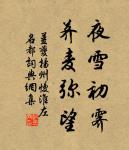 夜雪初霁
荠麦弥望
姜夔扬州慢淮左
名都词典网集